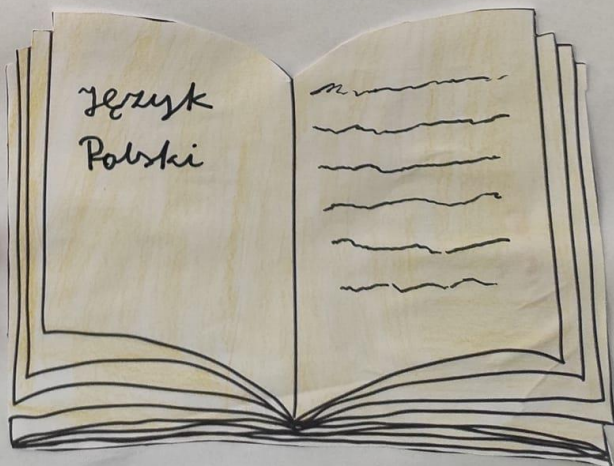 Język
Polski